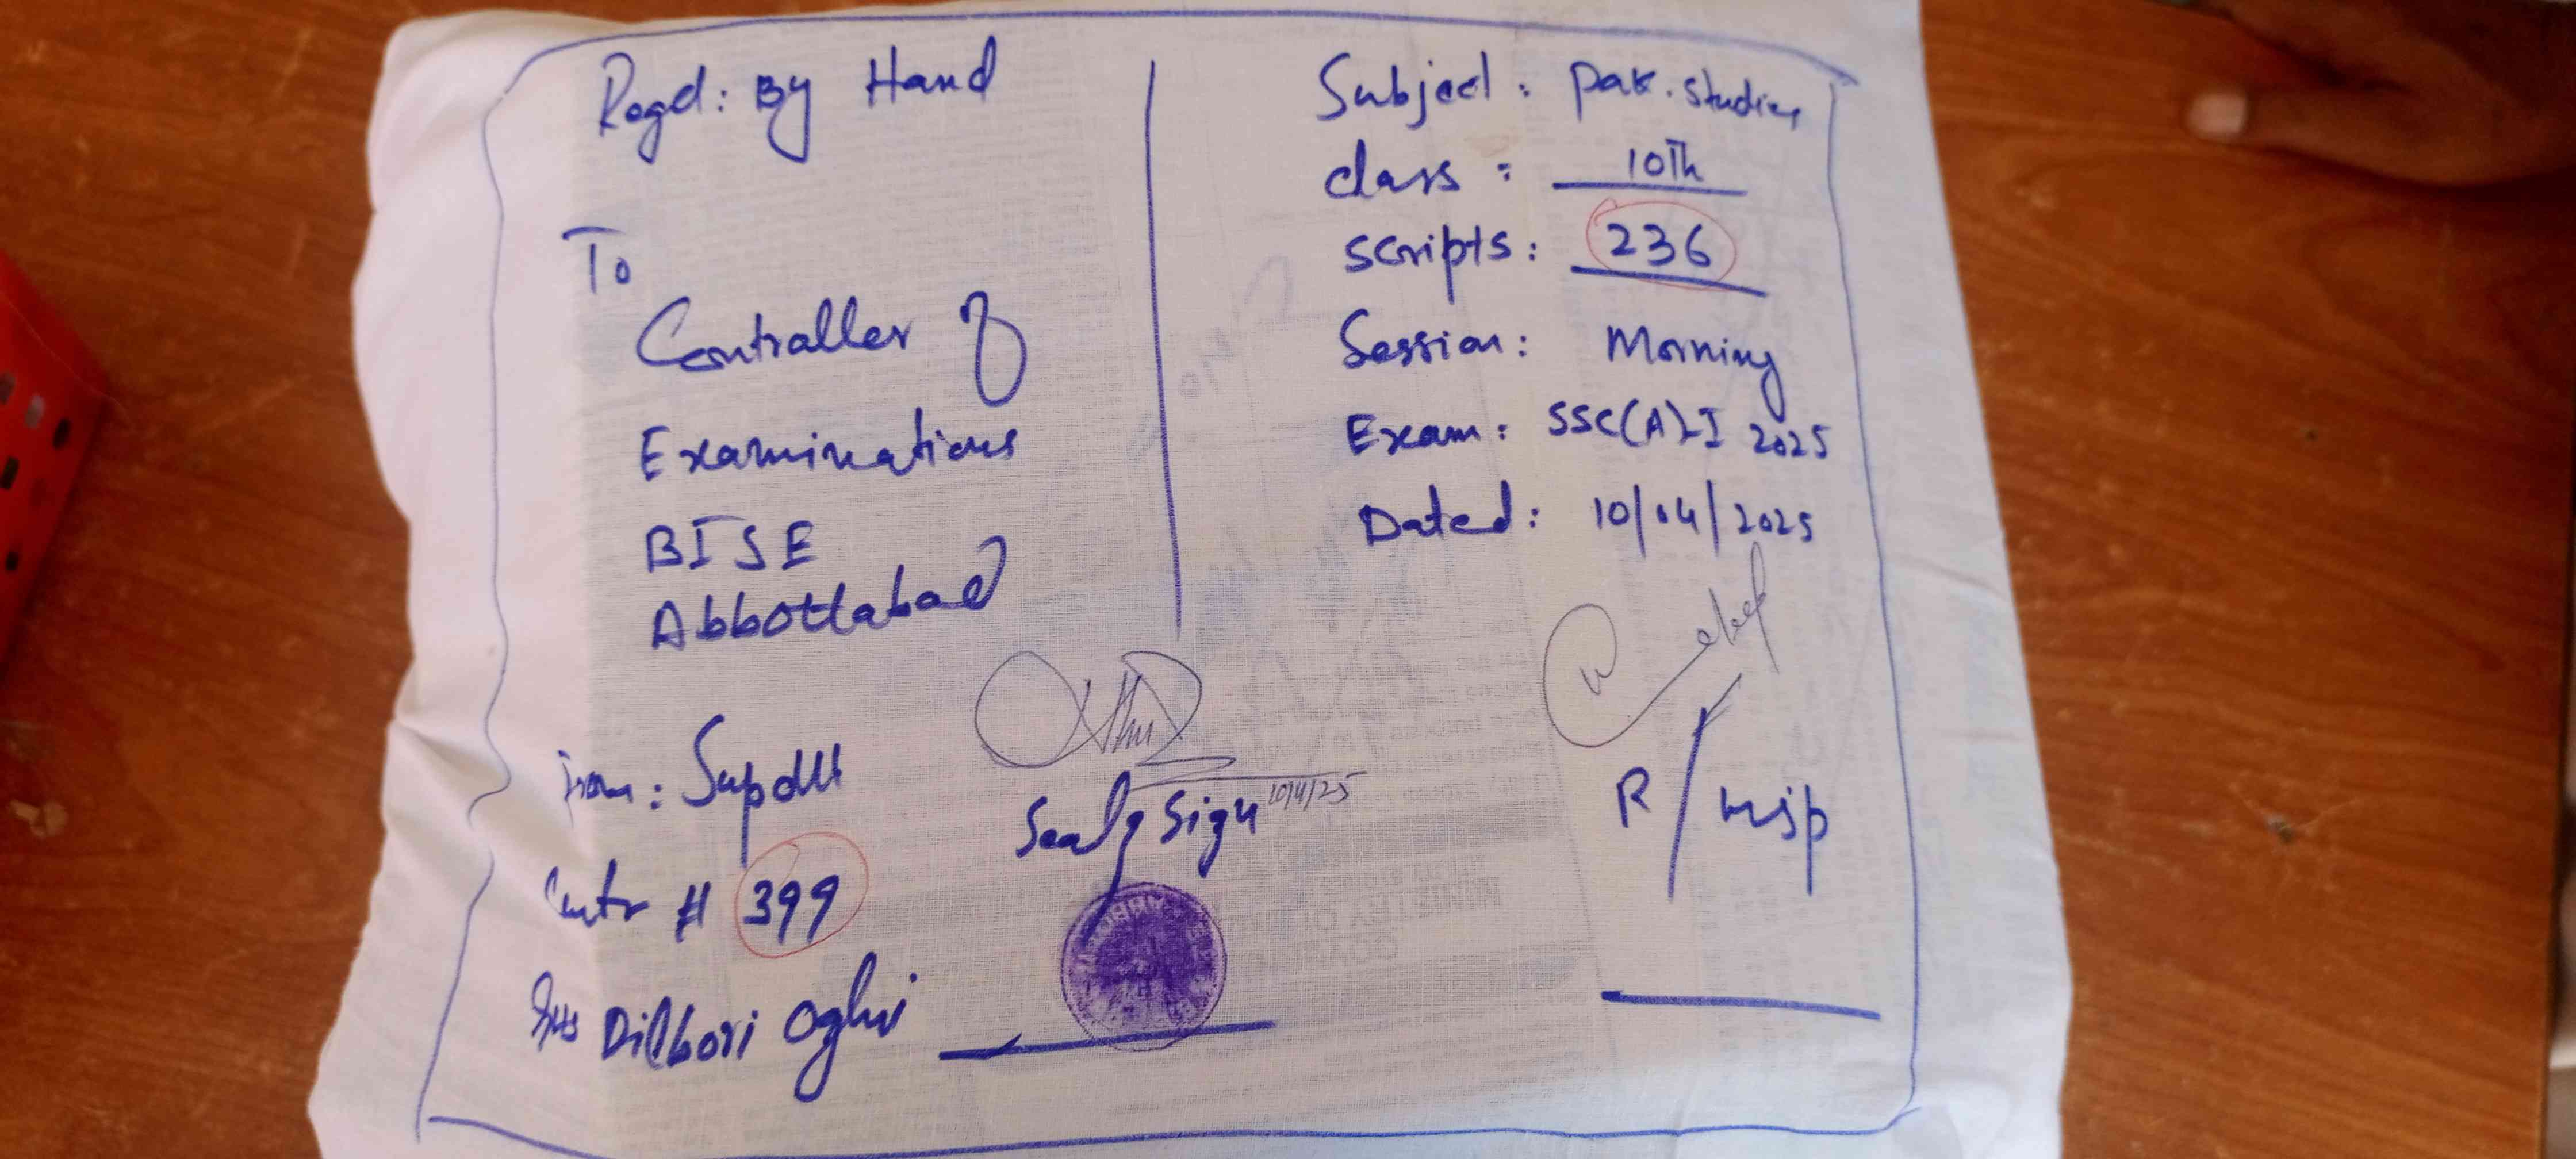 Regd: By Hand
To
Controller of
Examinations
BISE
Abbottabad
Subject: Pak. Studies
class: 10Th
scripts: 236
Session: Morning
Exam: SSC(A)-I 2025
Dated: 10/04/2025
from: Supdtt
Centr # 399
GHS Dilbori Oghi
10/4/25
Seal & Sign
R/Insp